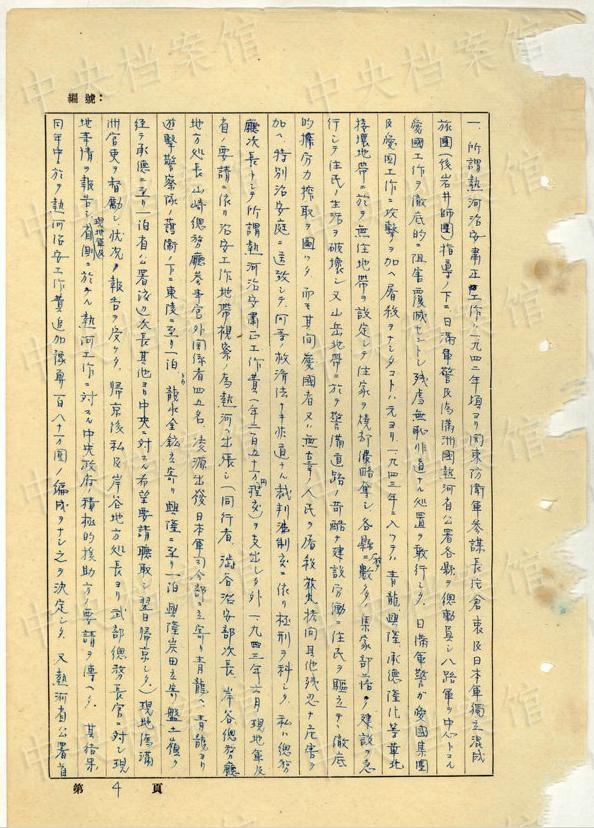 編號:
一、所謂熱河治安肅正工作ハ一九四二年頃ヨリ関東防衛軍参謀長片倉衷及日本軍獨立混成
旅團(後岩井師團)指導ノ下ニ日満軍警及偽満洲國熱河省公署各縣ヲ總動員シ八路軍ヲ中心トスル
愛國工作ヲ徹底的ニ阻害覆滅セントシ残虐無恥非道ナル処置ヲ敢行シタ。日満軍警ガ愛國集團
及愛國工作ニ攻撃ヲ加ヘ屠殺ヲナシタコトハ元ヨリ一九四三年ニ入ツテハ青龍興隆承德隆化等華北
接壌地帯ニ於テ無住地帯ヲ設定シテ住家ヲ焼却優略奪シ各縣ニ数多ノ集家部落ヲ建設ヲ急
行シテ住民ノ生活ヲ破壊シ又山岳地帯ニ於テ警備道路ノ苛酷ナ建設労働ニ住民ヲ驅立テテ徹底
的ナ労力搾取ヲ図ツタ 而モ其间愛國者又ハ無辜ノ人民ヲ屠殺 拷问其他残忍ナ危害ヲ
加ヘ特別治安庭ニ送致シテ何等ノ救済法ナキ非道ナル裁判法制ニ依リ極刑ヲ科シタ 私ハ總務
廳次長トシテ所謂熱河治安肅正工作費(一年二百五十万円程度)ヲ支出シタ外一九四三年六月現地軍及
省ノ要請ニ依リ治安工作地帯視察ノ為熱河ヘ出張シ(同行者 澁谷治安部次長 岸谷總務廳
地方処長 山崎總務廳参事官外関係者四五名 凌源出発日本軍司令部ニ立寄リ青龍ヘ 青龍ヨリ
遊撃警察隊ノ護衛ノ下ニ東陵ニ至リ一泊 ヨリ龍水金鉱立寄リ興隆ニ至リ一泊 興隆炭田立寄盤山嶺ヲ
経テ承德ニ至リ一泊省公署渡辺次長其他ヨリ中央ニ対スル希望要請聴取シ翌日帰京シタ)現地偽満
洲官吏ヲ督勵シ状況ノ報告ヲ受ケタ 帰京後私及岸谷地方処長ヨリ武部總務長官ニ対シ現
地事情ヲ報告シ現地軍及省側ニ於ケル熱河工作ニ対スル中央政府ノ積極的援助方ノ要請ヲ傳ヘタ 其結果
同年中ニ於テ熱河治安工作費追加豫算百八十万圓ノ編成ヲナシ之ヲ決定シタ 又熱河省公署首
第 4 頁